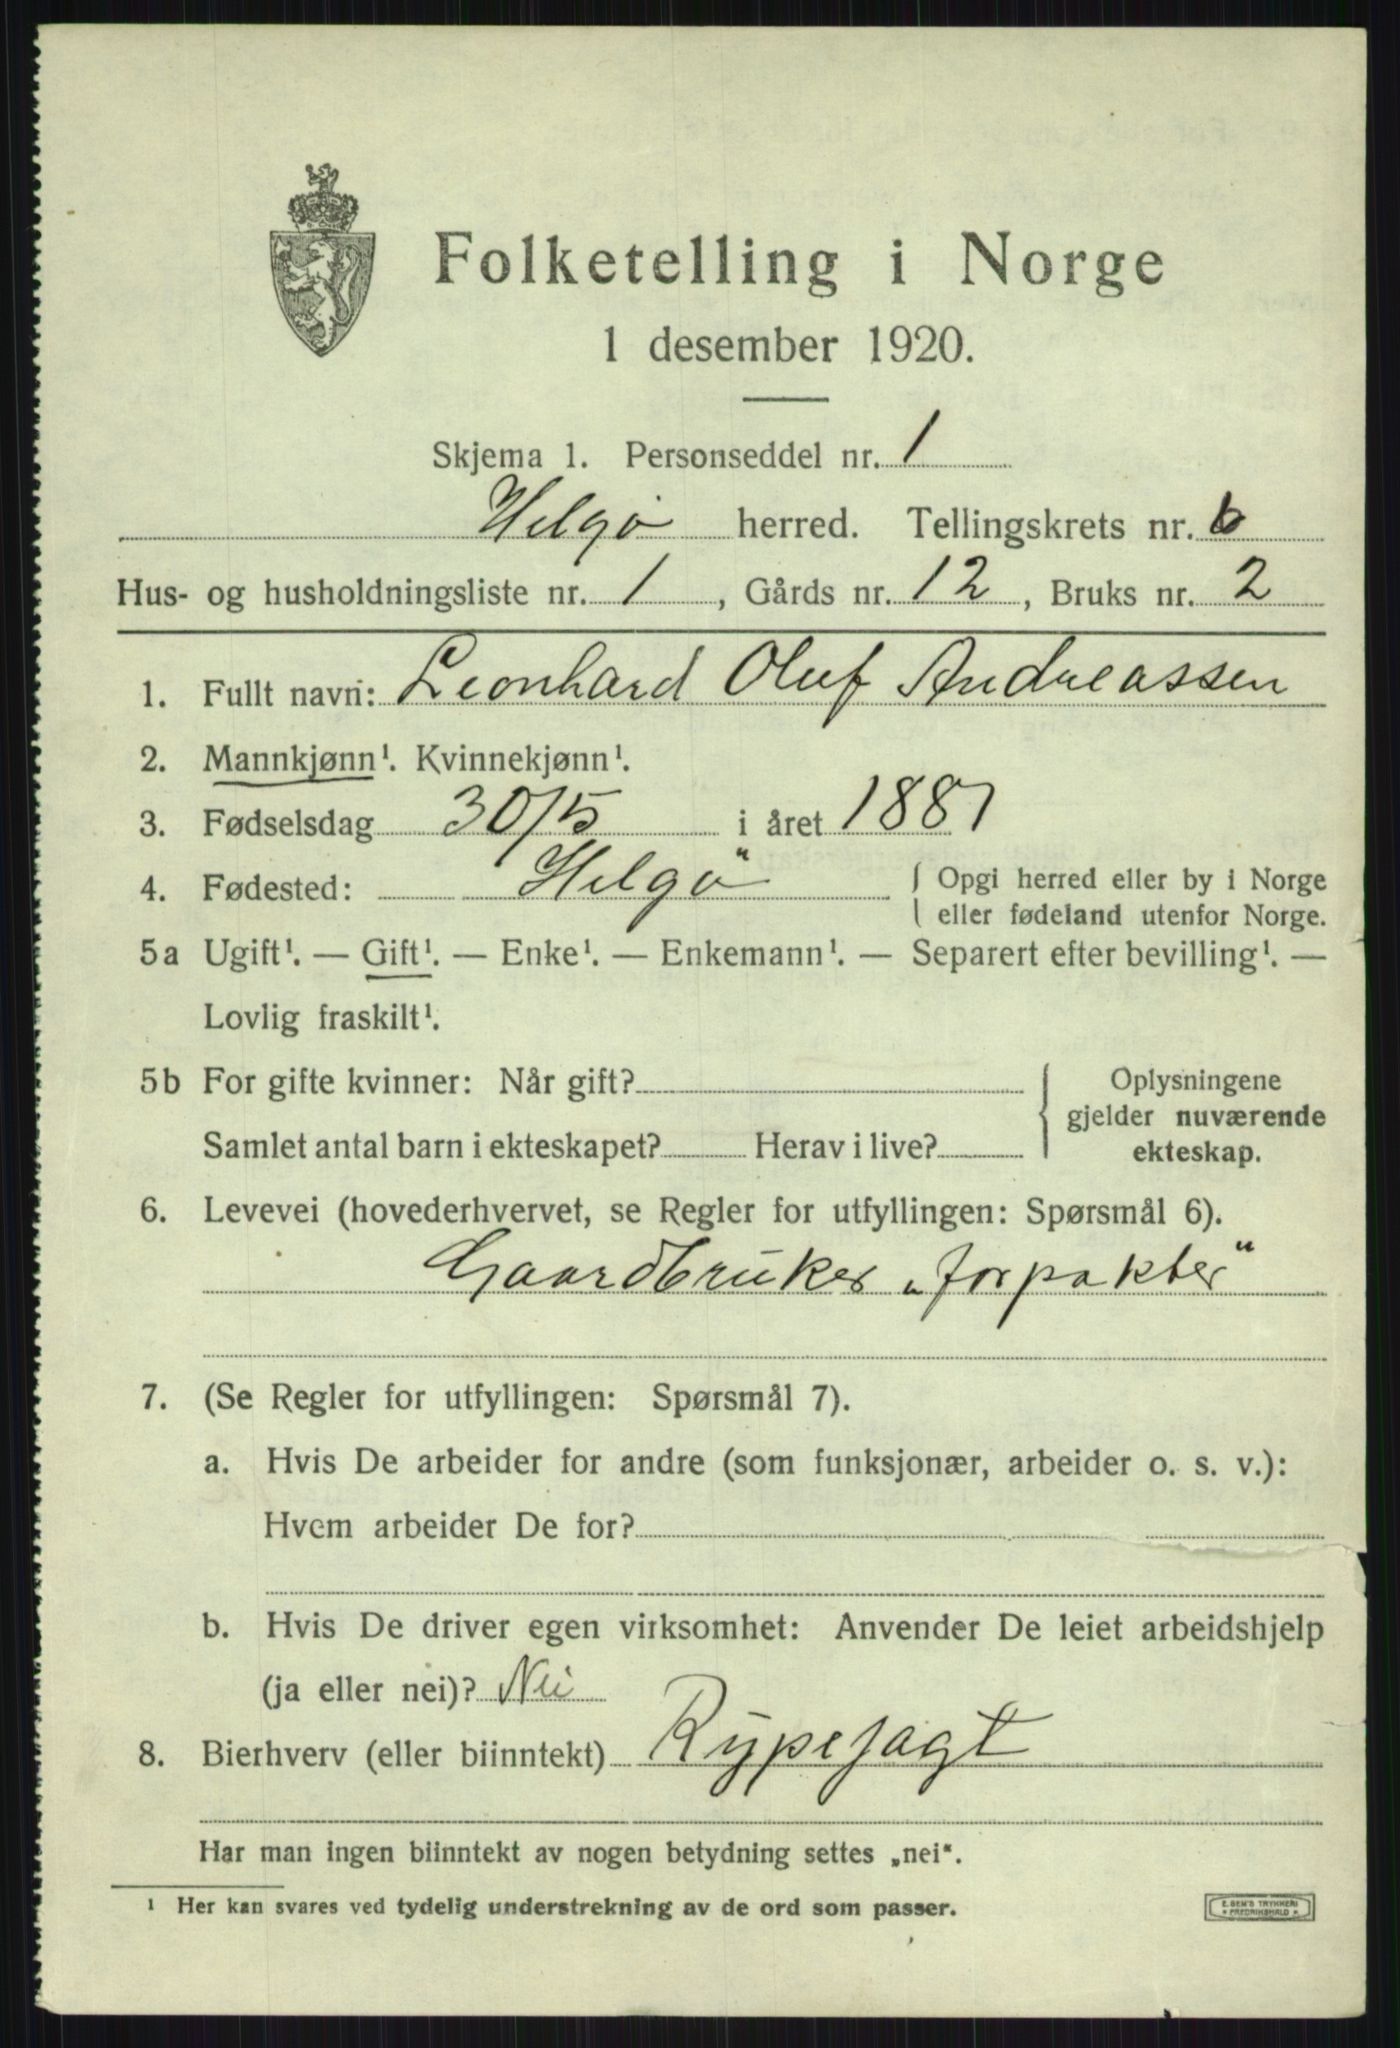 Folketelling i Norge
1 desember 1920.
Skjema 1. Personseddel nr. 1
Helgø herred. Tellingskrets nr. 6
Hus- og husholdningsliste nr. 1, Gårds nr. 12, Bruks nr. 2
1. Fullt navn: Leonhard Oluf Andreassen
2. Mannkjønn¹. Kvinnekjønn¹.
3. Fødselsdag 30/5 i året 1881
4. Fødested: Helgö { Opgi herred eller by i Norge
eller fødeland utenfor Norge.
5a Ugift¹. — Gift¹. — Enke¹. — Enkemann¹. — Separert efter bevilling¹. —
Lovlig fraskilt¹.
5b For gifte kvinner: Når gift? Oplysningene
gjelder nuværende
Samlet antal barn i ekteskapet? Herav i live? ekteskap.
6. Levevei (hovederhvervet, se Regler for utfyllingen: Spørsmål 6).
Gaardbruker „forpakter“
7. (Se Regler for utfyllingen: Spørsmål 7).
a. Hvis De arbeider for andre (som funksjonær, arbeider o. s. v.):
Hvem arbeider De for?
b. Hvis De driver egen virksomhet: Anvender De leiet arbeidshjelp
(ja eller nei)? Nei
8. Bierhverv (eller biinntekt) Rypejagt
Har man ingen biinntekt av nogen betydning settes „nei“.
¹ Her kan svares ved tydelig understrekning av de ord som passer.
E. SEM'S TRYKKERI
* FREDRIKSHALD *